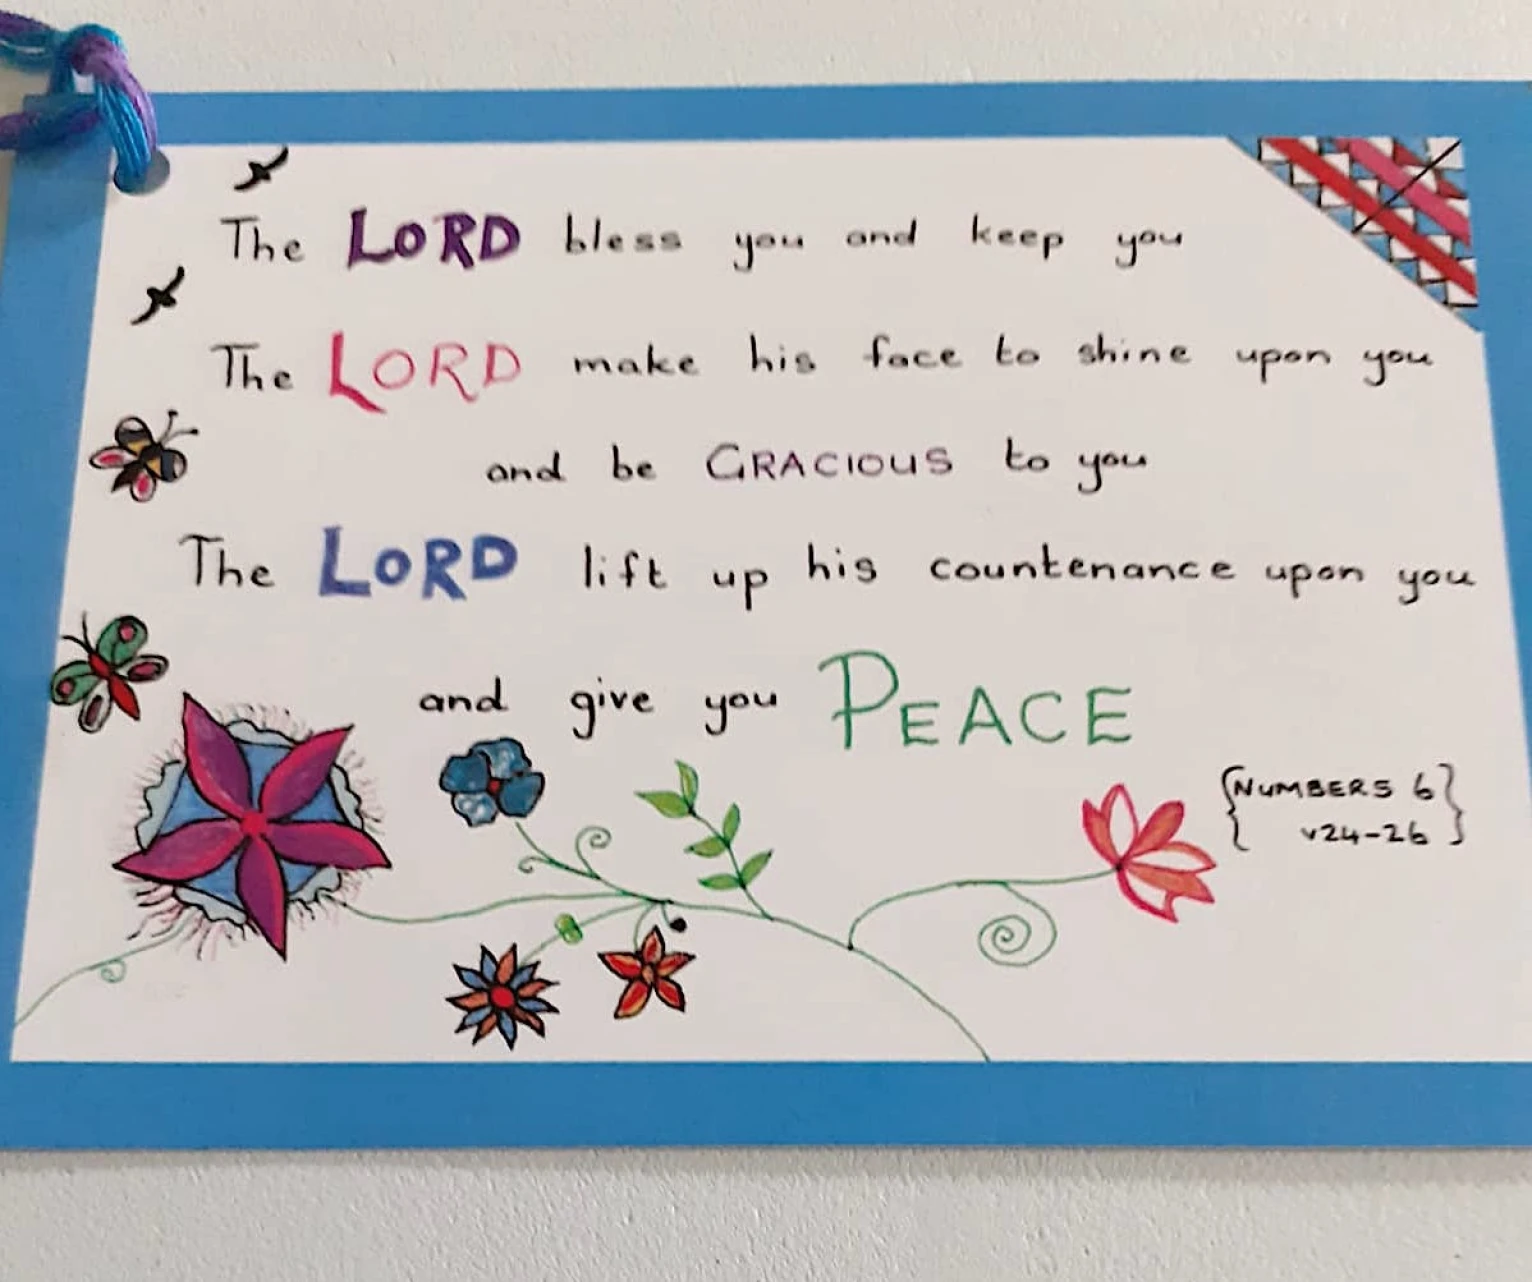 The LORD bless you and keep you
The LORD make his face to shine upon you
and be GRACIOUS to you
The LORD lift up his countenance upon you
and give you PEACE
{NUMBERS 6}
{v24-26}